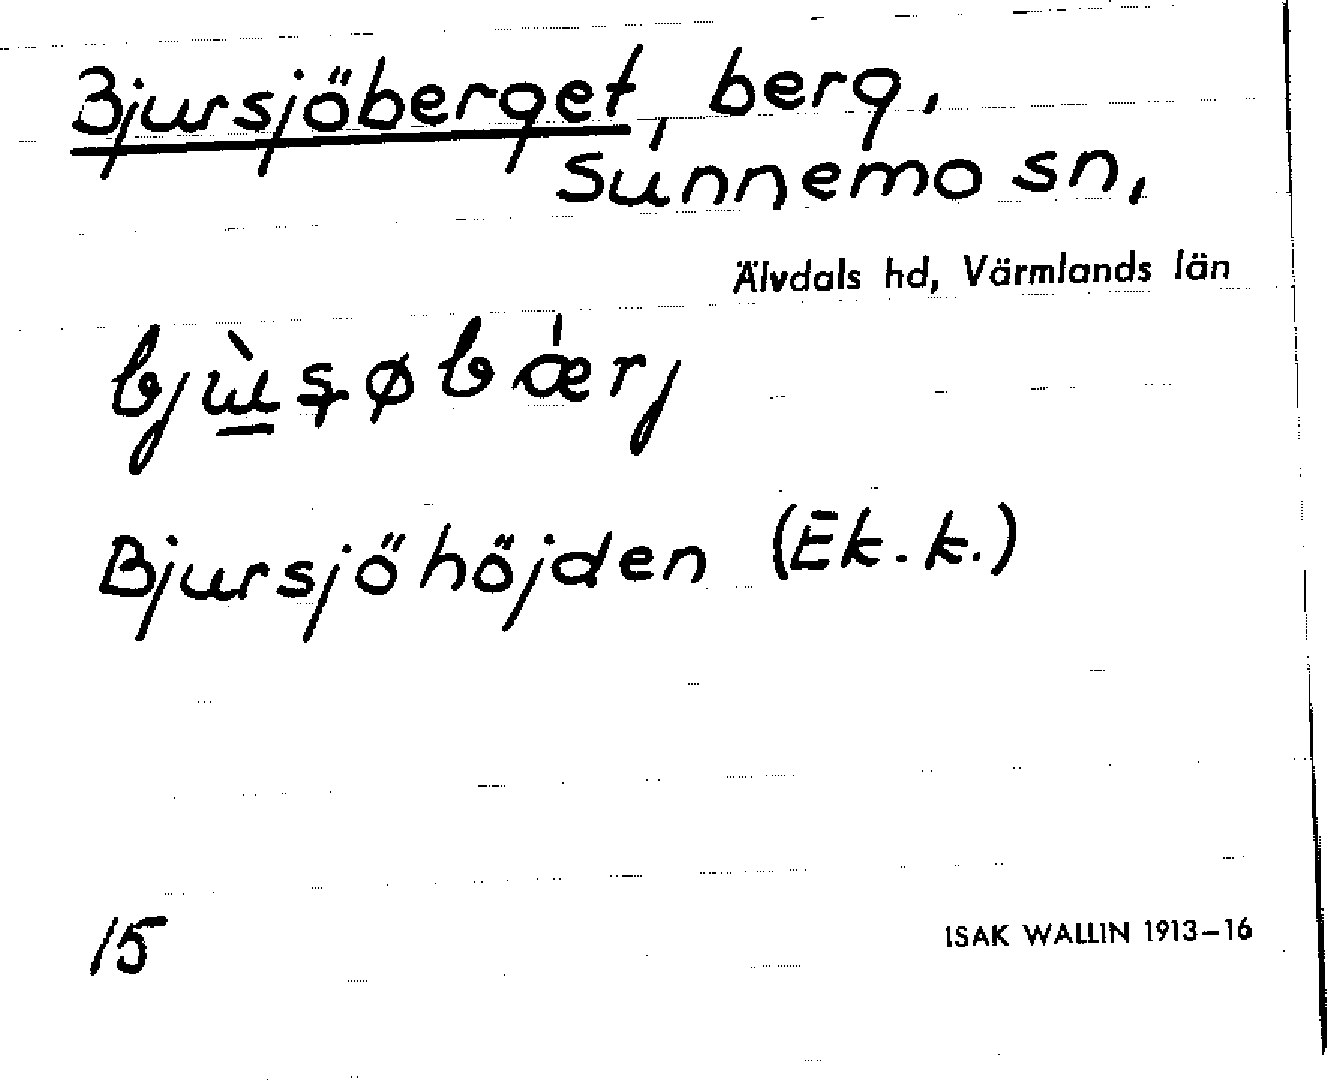 Bjursjöberget, berg,
Sunnemo sn,
Älvdals hd, Värmlands län
bjùs̩øbǽrj
Bjursjöhöjden (Ek. k.)
15
ISAK WALLIN 1913–16